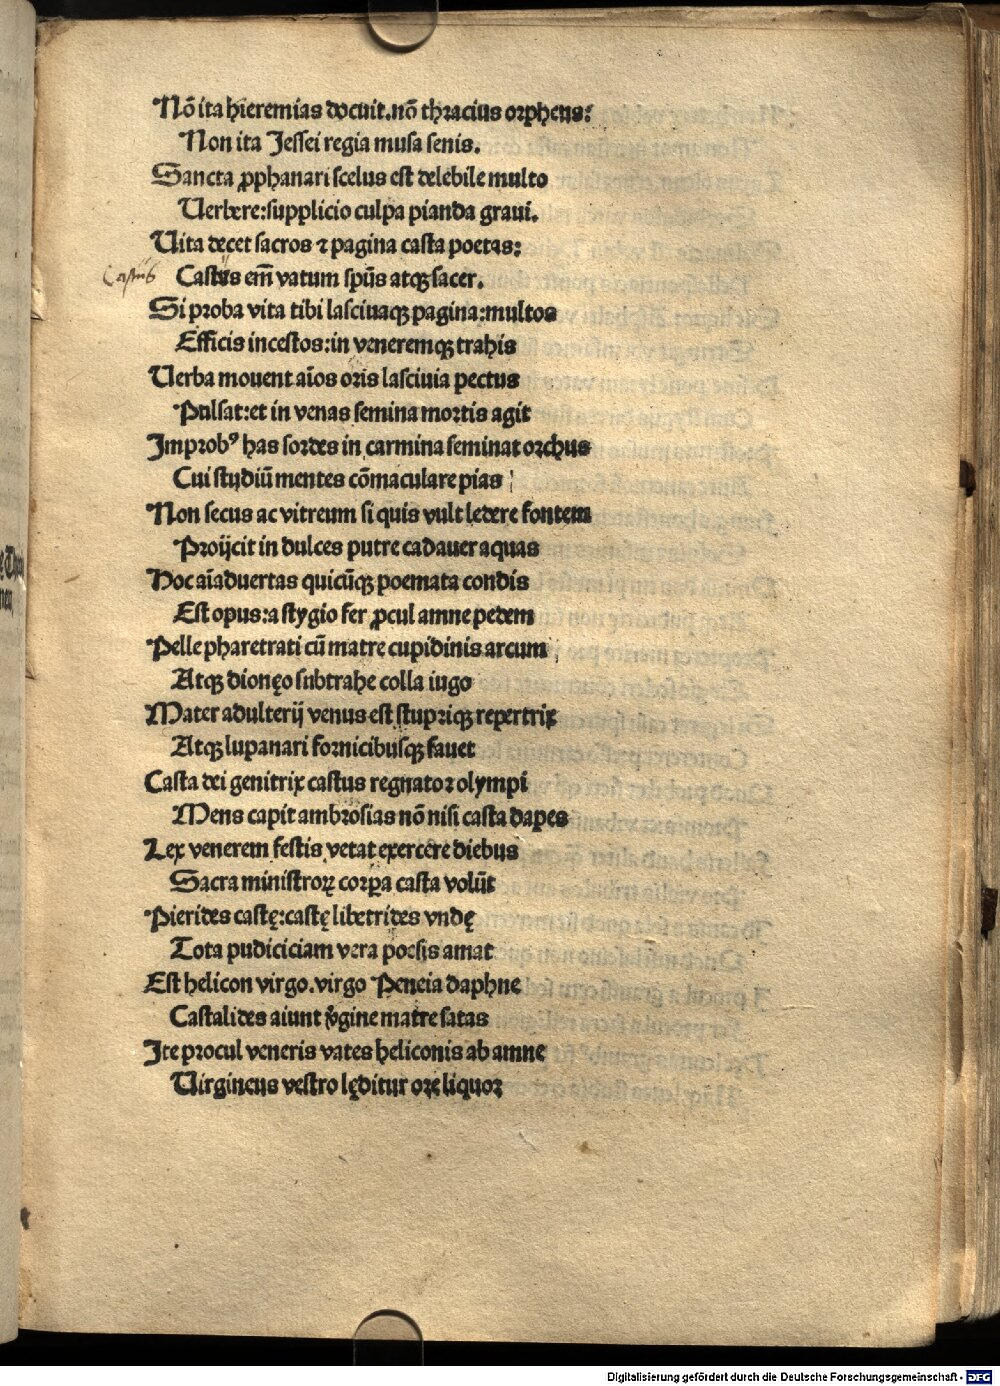 Nō ita hieremias docuit. nō thracius orpheus:
Non ita Jessei regia musa senis.
Sancta ꝓphanari scelus est delebile multo
Uerbere: supplicio culpa pianda graui.
Uita decet sacros ⁊ pagina casta poetas:
Castus
Castus em̄ vatum spūs atqꝫ sacer.
Si proba vita tibi lasciuaqꝫ pagina: multos
Efficis incestos: in veneremqꝫ trahis
Uerba mouent aīos oris lasciuia pectus
Pulsat: et in venas semina mortis agit
Improbꝰ has sordes in carmina seminat orchus
Cui studiū mentes cōmaculare pias
Non secus ac vitreum si quis vult ledere fontem
Proijcit in dulces putre cadauer aquas
Hoc aīaduertas quicūqꝫ poemata condis
Est opus: a stygio fer ꝓcul amne pedem
Pelle pharetrati cū matre cupidinis arcum
Atqꝫ dionęo subtrahe colla iugo
Mater adulterij venus est stupriqꝫ repertrix
Atqꝫ lupanari fornicibusqꝫ fauet
Casta dei genitrix castus regnator olympi
Mens capit ambrosias nō nisi casta dapes
Lex venerem festis vetat exercere diebus
Sacra ministroꝝ corꝑa casta volūt
Pierides castę: castę libetrides vndę
Tota pudiciciam vera poesis amat
Est helicon virgo. virgo Peneia daphne
Castalides aiunt v̄gine matre satas
Ite procul veneris vates heliconis ab amne
Uirgineus vestro lęditur orę liquor
Digitalisierung gefördert durch die Deutsche Forschungsgemeinschaft - DFG